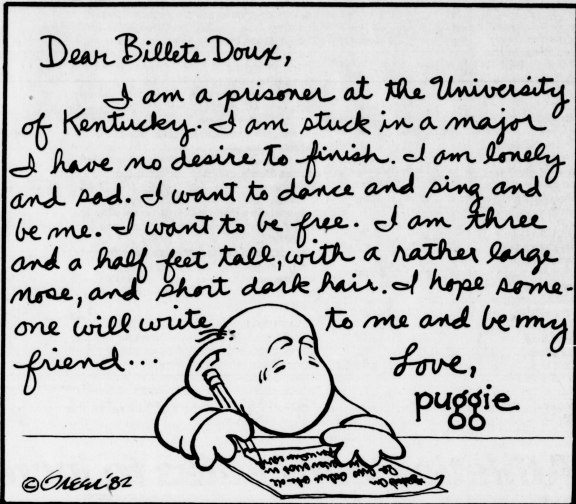 Dear Billets Doux,
I am a prisoner at the University
of Kentucky. I am stuck in a major
I have no desire to finish. I am lonely
and sad. I want to dance and sing and
be me. I want to be free. I am three
and a half feet tall, with a rather large
nose, and short dark hair. I hope some-
one will write to me and be my
friend...
Love,
puggie
©Greer'82